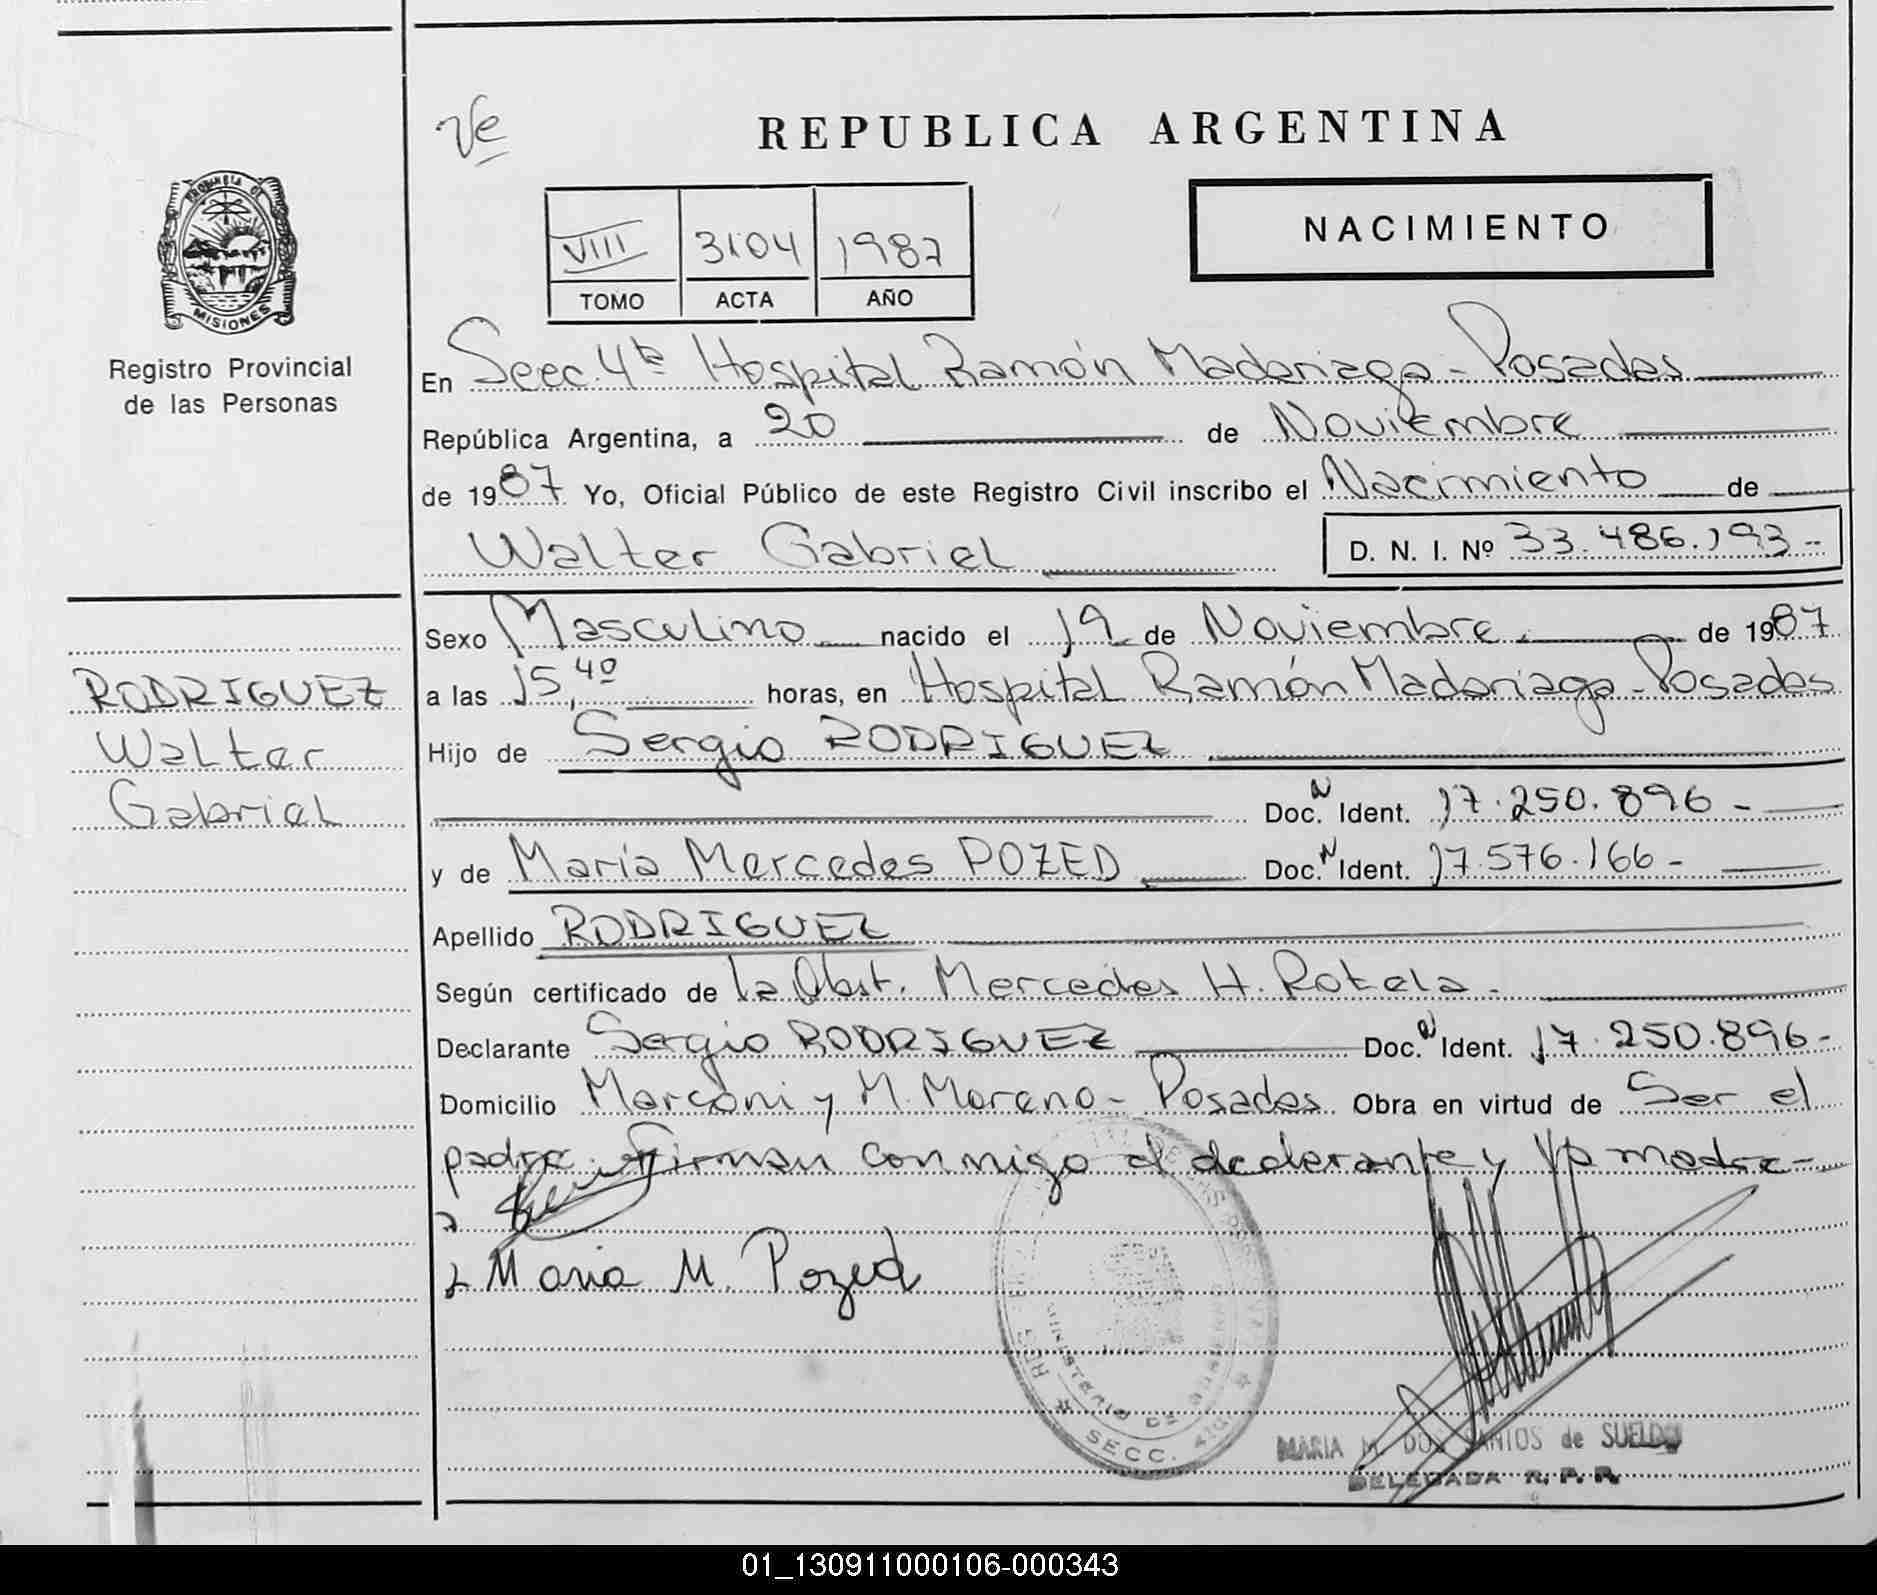 Ve
REPUBLICA ARGENTINA
PROVINCIA DE
MISIONES
Registro Provincial
de las Personas
VIII 3104 1987
TOMO ACTA AÑO
NACIMIENTO
En Secc. 4ta Hospital Ramón Madariaga - Posadas
República Argentina, a 20 de Noviembre
de 1987 Yo, Oficial Público de este Registro Civil inscribo el Nacimiento de
Walter Gabriel D. N. I. Nº 33.486.193-
RODRIGUEZ
Walter
Gabriel
Sexo Masculino nacido el 19 de Noviembre de 1987
a las 15,40 horas, en Hospital Ramón Madariaga - Posadas
Hijo de Sergio RODRIGUEZ
Doc. N Ident. 17.250.896-
y de María Mercedes POZED Doc. N Ident. 17.576.166-
Apellido RODRIGUEZ
Según certificado de la Obst. Mercedes H. Rotela.
Declarante Sergio RODRIGUEZ Doc. N Ident. 17.250.896-
Domicilio Marconi y M. Moreno - Posadas Obra en virtud de Ser el
padre. Firman conmigo el declarante y la madre-
Maria M. Pozed
MINISTERIO DE GOBIERNO
SECC. 4ta
MARIA M. DOS SANTOS de SUELDO
DELEGADA R. P. P.
01_130911000106-000343